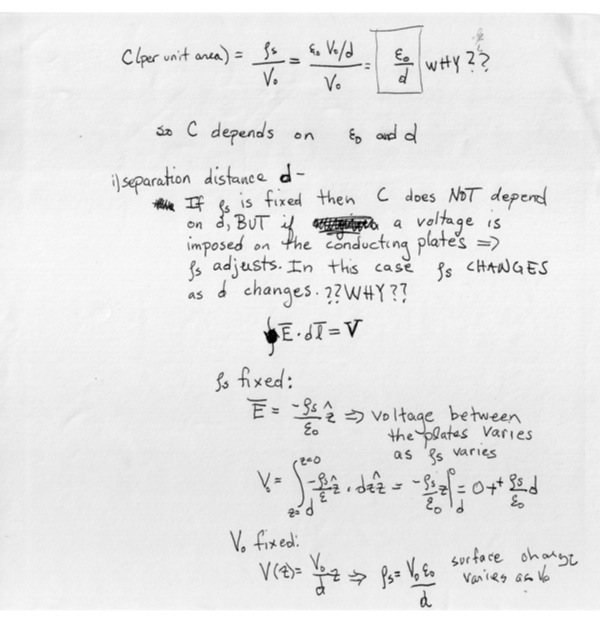 C(per unit area) = ρs/V₀ = ε₀ V₀/d / V₀ = ε₀/d WHY??
so C depends on ε₀ and d
i) separation distance d -
If ρs is fixed then C does NOT depend
on d, BUT if a voltage is
imposed on the conducting plates ⇒
ρs adjusts. In this case ρs CHANGES
as d changes. ??WHY??
∫E̅·dl̅ = V
ρs fixed:
E̅ = -ρs/ε₀ ẑ ⇒ voltage between
the plates varies
as ρs varies
V₀ = ∫_{z=d}^{z=0} -ρs/ε ẑ · dz ẑ = -ρs/ε₀ z|_d^0 = 0 + + ρs/ε₀ d
V₀ fixed:
V(z) = V₀/d z ⇒ ρs = V₀ε₀/d surface charge
varies as V₀